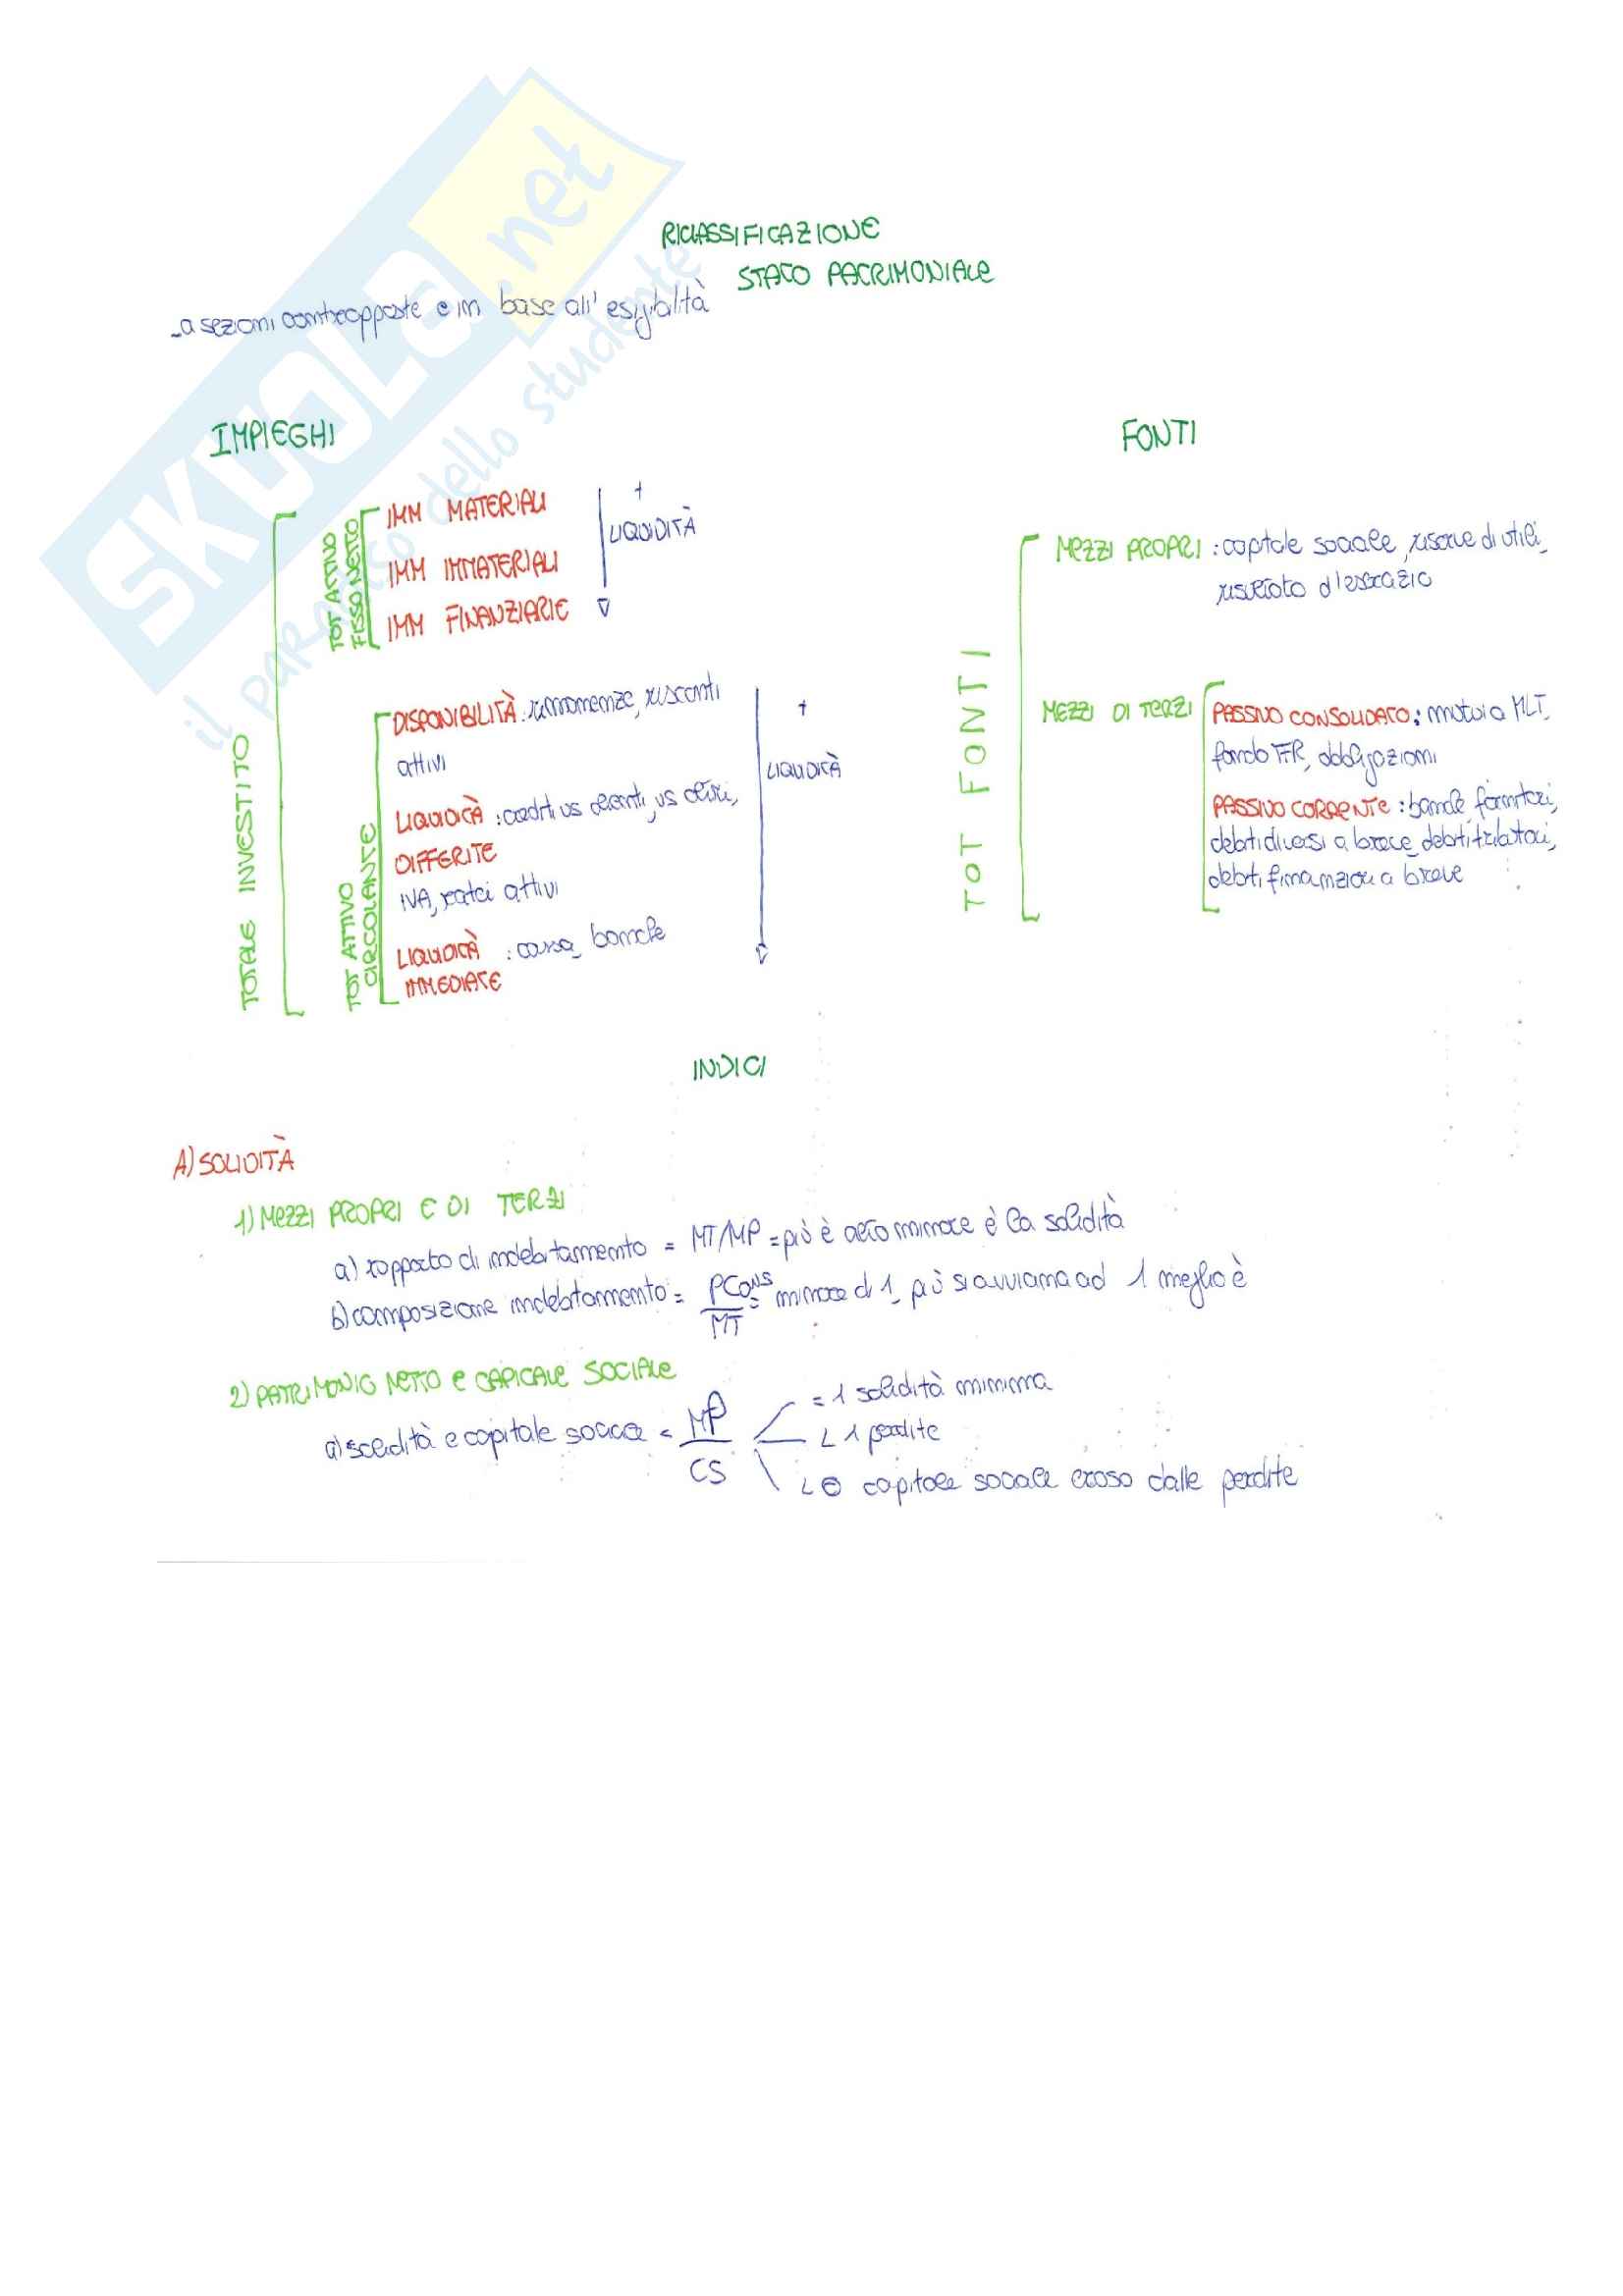 SKUOLA.net
il paradiso dello studente
RICLASSIFICAZIONE
STATO PATRIMONIALE
-a sezioni contrapposte e in base all'esigibilità
IMPIEGHI
TOTALE INVESTITO
TOT ATTIVO
FISSO NETTO
IMM MATERIALI
IMM IMMATERIALI
IMM FINANZIARIE
+
LIQUIDITÀ
TOT ATTIVO
CIRCOLANTE
DISPONIBILITÀ: rimanenze, risconti
attivi
LIQUIDITÀ : crediti vs clienti, vs altri,
DIFFERITE
IVA, ratei attivi
LIQUIDITÀ : cassa, banche
IMMEDIATE
+
LIQUIDITÀ
FONTI
TOT FONTI
MEZZI PROPRI : capitale sociale, riserve di utili,
risultato d'esercizio
MEZZI DI TERZI
PASSIVO CONSOLIDATO: mutui a MLT,
fondo TFR, obbligazioni
PASSIVO CORRENTE : banche, fornitori,
debiti diversi a breve, debiti tributari,
debiti finanziari a breve
INDICI
A) SOLIDITÀ
1) MEZZI PROPRI E DI TERZI
a) rapporto di indebitamento = MT/MP = più è alto minore è la solidità
b) composizione indebitamento = PCons/MT = minore di 1, più si avvicina ad 1 meglio è
2) PATRIMONIO NETTO e CAPITALE SOCIALE
a) solidità e capitale sociale = MP/CS
= 1 solidità minima
< 1 perdite
< 0 capitale sociale eroso dalle perdite